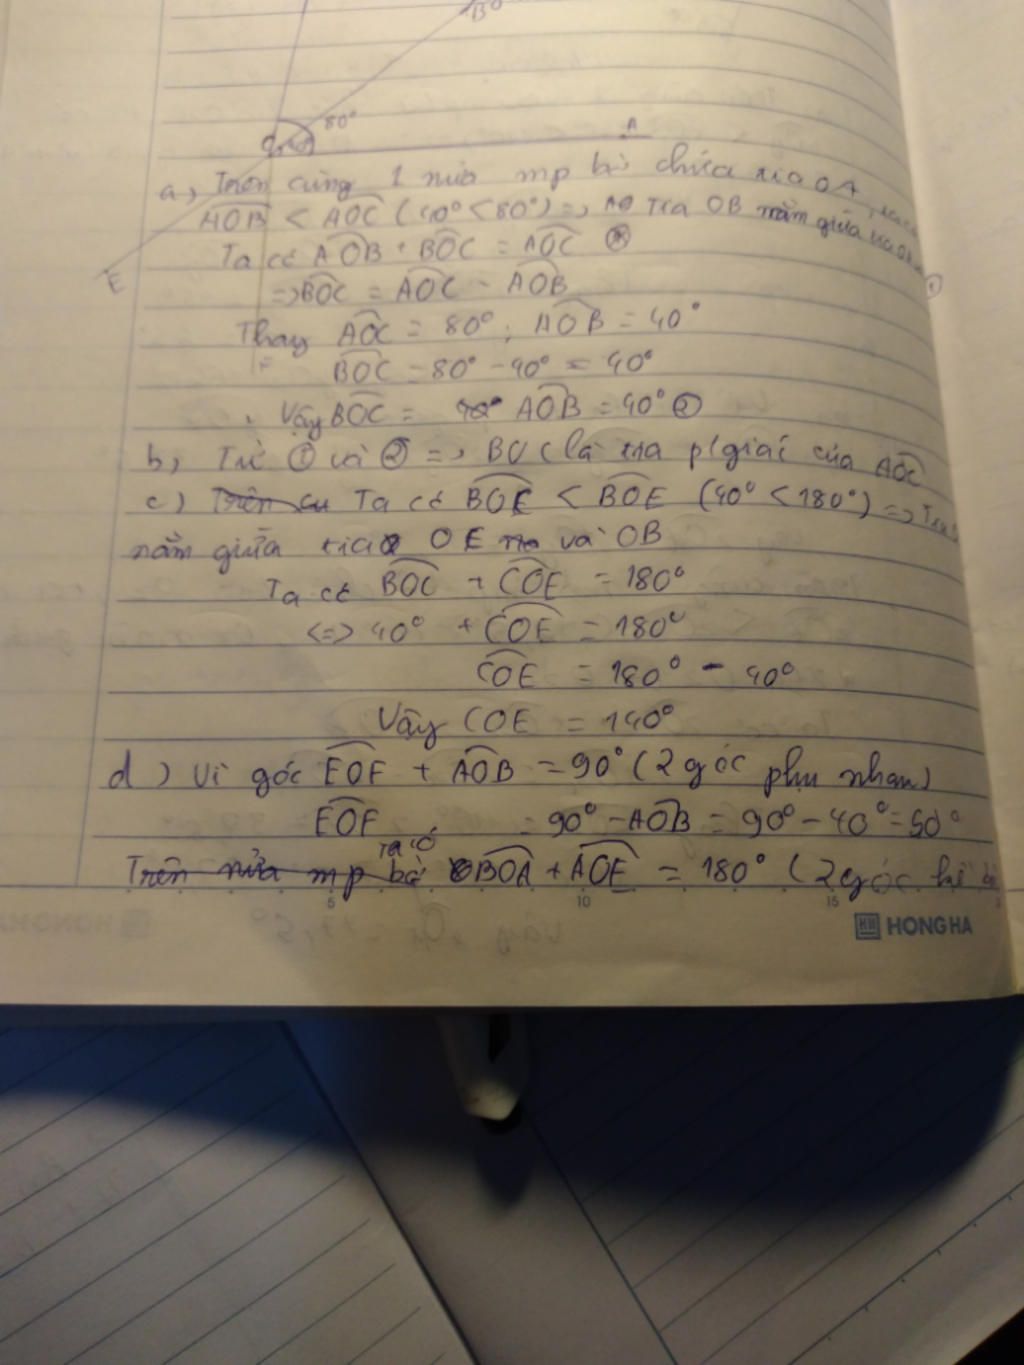 B
80°
O
A
E
a, Trên cùng 1 nửa mp bờ chứa tia OA,
AOB < AOC (40° < 80°) => tia OB nằm giữa
Ta có AOB + BOC = AOC (*)
=> BOC = AOC - AOB
Thay AOC = 80°, AOB = 40°
BOC = 80° - 40° = 40°
Vậy BOC = AOB = 40° ②
b, Từ ① và ② => là tia p/giác của AOC
c) Ta có BOC < BOE (40° < 180°) =>
nằm giữa tia OE và OB
Ta có BOC + COE = 180°
<=> 40° + COE = 180°
COE = 180° - 40°
Vậy COE = 140°
d) Vì góc EOF + AOB = 90° (2 góc phụ nhau)
EOF = 90° - AOB = 90° - 40° = 50°
Ta có
Trên nửa mp bờ BOA + AOE = 180° (2 góc kề
5 10 15
HH HONG HA